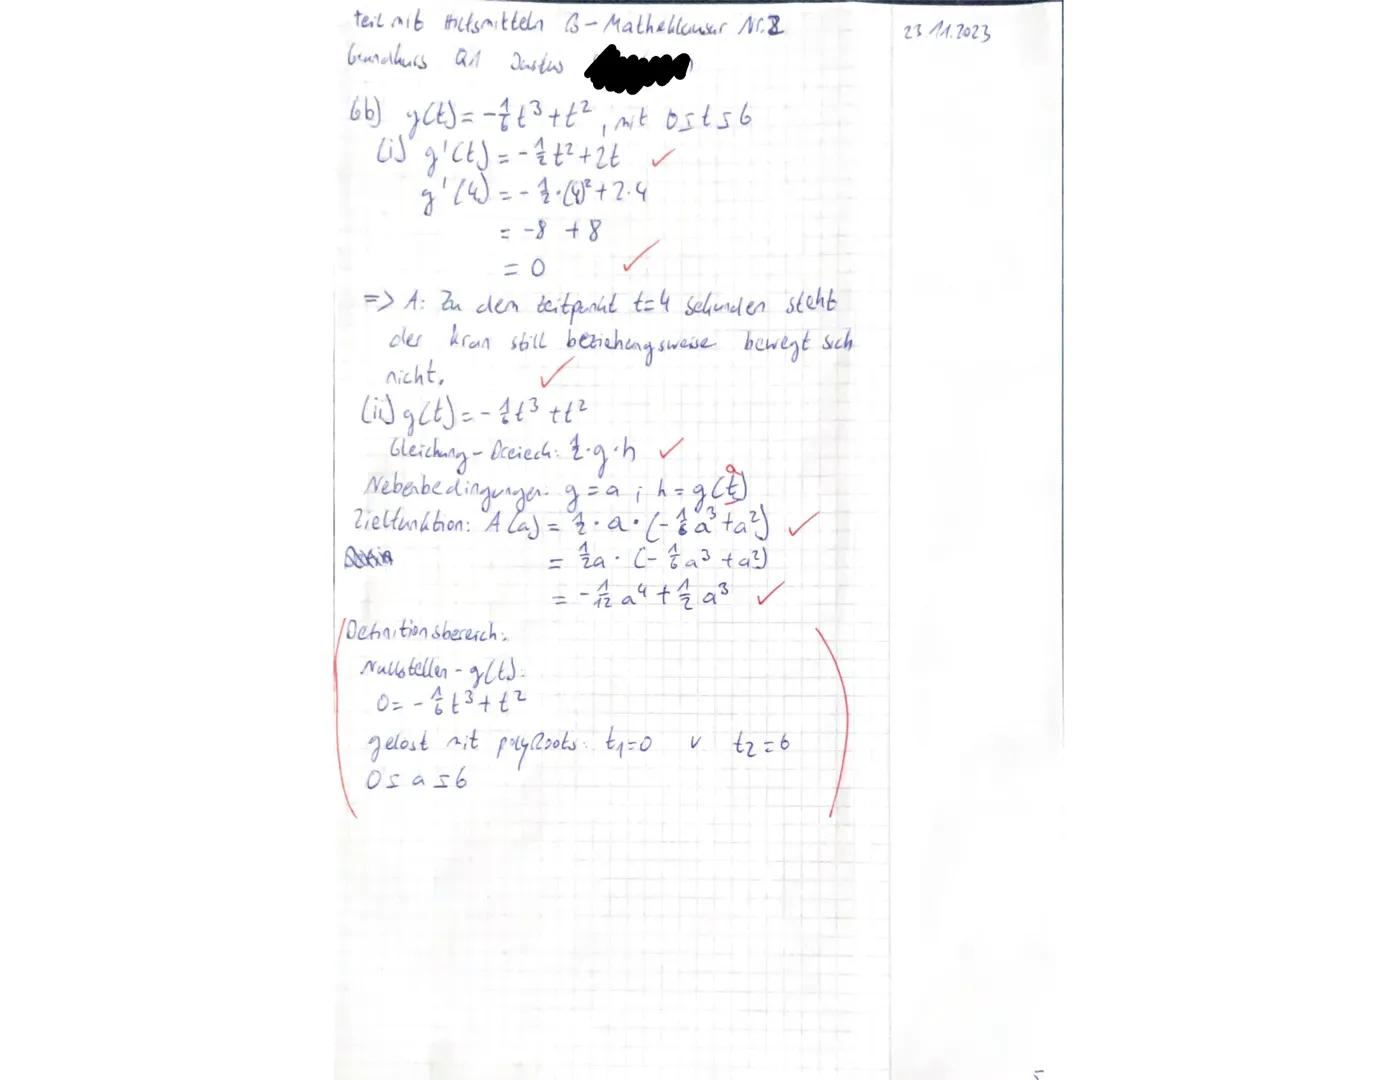 teil mit Hilfsmitteln B - Matheklausur Nr. 2
23.11.2023
Grundkurs Q1 Justus
6b) g(t) = -1/6 t³ + t², mit 0 ≤ t ≤ 6
(i) g'(t) = -1/2 t² + 2t ✓
g'(4) = -1/2 · (4)² + 2 · 4
= -8 + 8
= 0 ✓
=> A: Zu dem Zeitpunkt t=4 Sekunden steht
der Kran still beziehungsweise bewegt sich
nicht. ✓
(ii) g(t) = -1/6 t³ + t²
Gleichung - Dreieck: 1/2 · g · h ✓
a
Nebenbedingungen: g = a ; h = g(t)
Zielfunktion: A(a) = 1/2 · a · (-1/6 a³ + a²) ✓
= 1/2 a · (-1/6 a³ + a²)
= -1/12 a⁴ + 1/2 a³ ✓
Definitionsbereich:
Nullstellen - g(t):
0 = -1/6 t³ + t²
gelöst mit polyRoots: t₁=0 v t₂=6
0 ≤ a ≤ 6